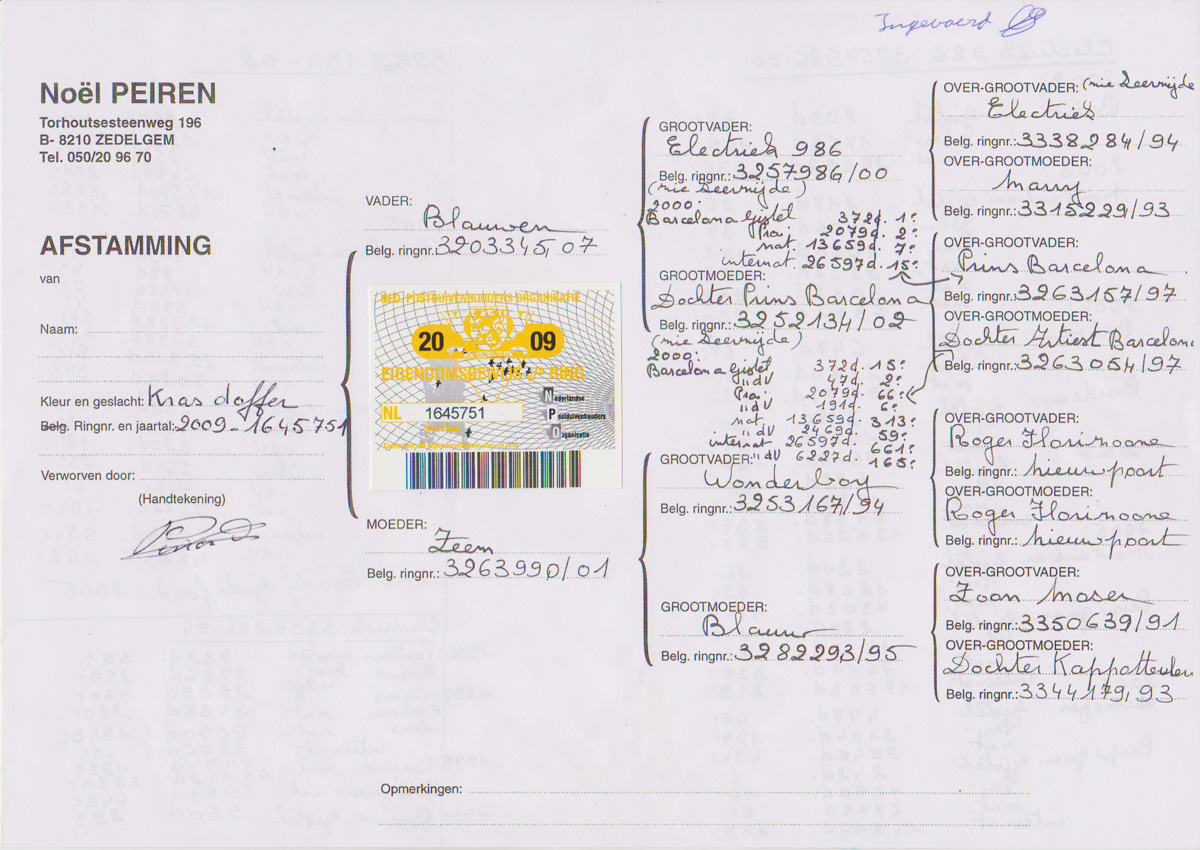 Ingevoerd
Noël PEIREN
Torhoutsesteenweg 196
B- 8210 ZEDELGEM
Tel. 050/20 96 70
AFSTAMMING
van
Naam:
Kleur en geslacht: Kras doffer
Belg. Ringnr. en jaartal: 2009-1645751
Verworven door:
(Handtekening)
VADER:
Blauwen
Belg. ringnr.: 3203345,07
NED. POSTDUIVENHOUDERS ORGANISATIE
20 09
EIGENDOMSBEWIJS v/d RING
NL 1645751
Nederlandse
Postduivenhouders
Organisatie
MOEDER:
Zeem
Belg. ringnr.: 3263990/01
GROOTVADER:
Electriek 986
Belg. ringnr.: 3257986/00
(mie Zeernijde)
2000:
Barcelona Gistel 372d. 1e
Prov. 2079d. 2e
nat. 13659d. 7e
internat 26597d. 15e
GROOTMOEDER:
Dochter Prins Barcelona
Belg. ringnr.: 3252134/02
2000:
Barcelona Gistel 372d 15e
"dV 47d. 2e
Prov. 2079d. 66e
"dV 191d. 6e
nat 13659d. 313e
"dV 2469d. 59e
internat 26597d. 661e
"dV 6227d. 165e
GROOTVADER:
Wonderboy
Belg. ringnr.: 3253167/94
GROOTMOEDER:
Blauw
Belg. ringnr.: 3282293/95
OVER-GROOTVADER:
Electriek
Belg. ringnr.: 3338284/94
OVER-GROOTMOEDER:
Marry
Belg. ringnr.: 3315229/93
OVER-GROOTVADER:
Prins Barcelona
Belg. ringnr.: 3263157/97
OVER-GROOTMOEDER:
Dochter Artiest Barcelona
Belg. ringnr.: 3263054/97
OVER-GROOTVADER:
Roger Florizoone
Belg. ringnr.: Nieuwpoort
OVER-GROOTMOEDER:
Roger Florizoone
Belg. ringnr.: Nieuwpoort
OVER-GROOTVADER:
Zoon Moser
Belg. ringnr.: 3350639/91
OVER-GROOTMOEDER:
Dochter
Belg. ringnr.: 3344179,93
Opmerkingen: